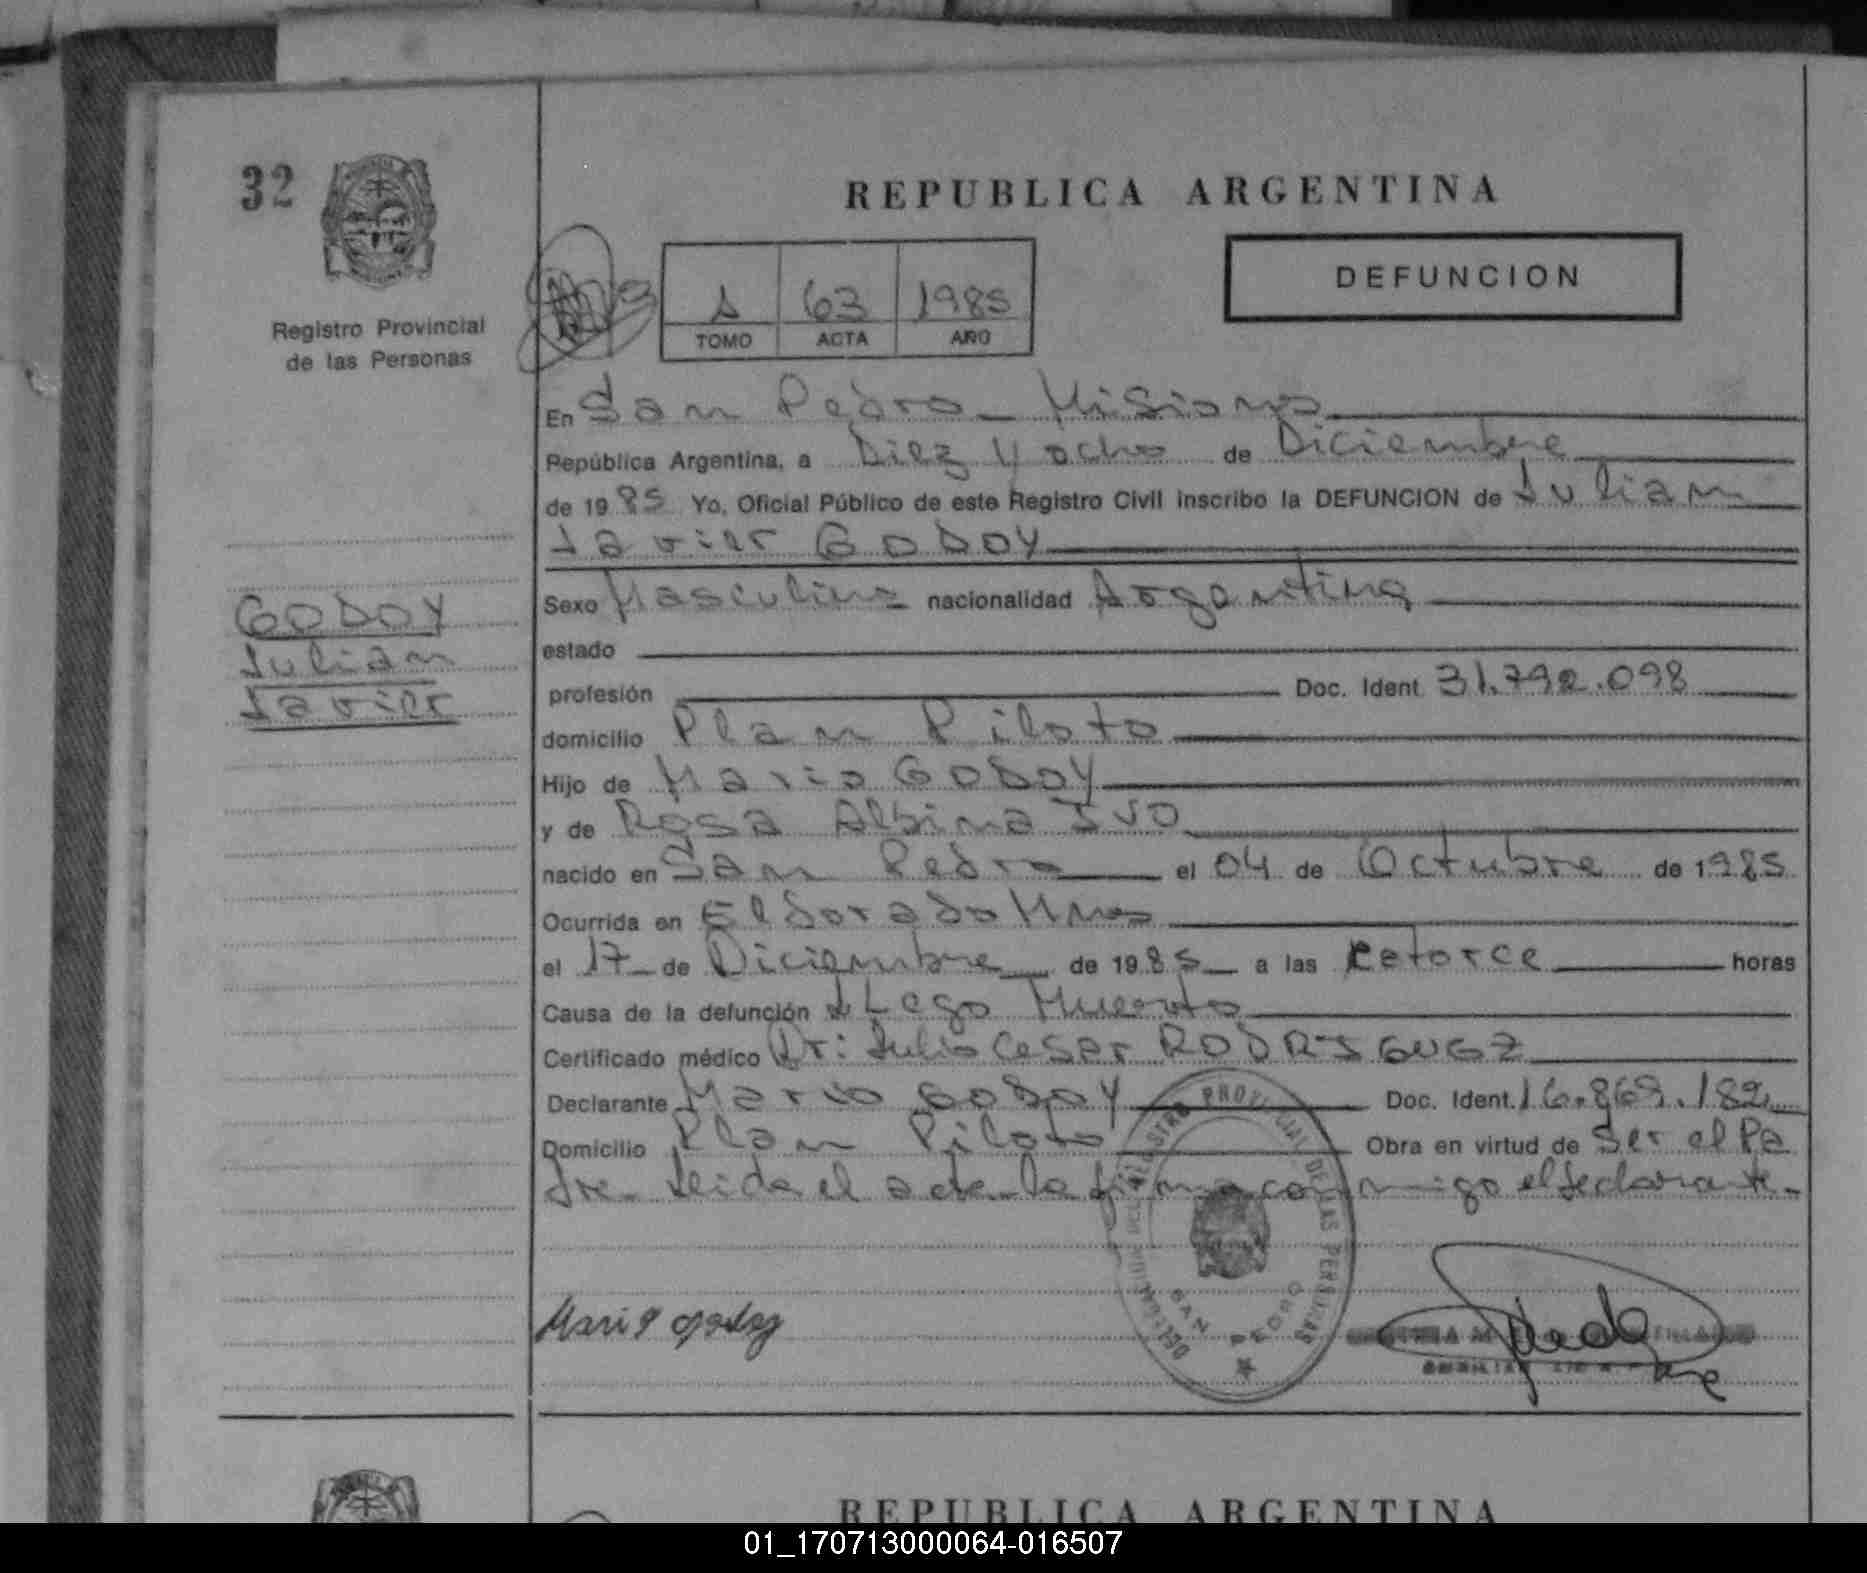 32
REPUBLICA ARGENTINA
DEFUNCION
Registro Provincial
de las Personas
1 63 1985
TOMO ACTA AÑO
En San Pedro - Misiones
República Argentina, a Diez y ocho de Diciembre
de 1985 Yo, Oficial Público de este Registro Civil inscribo la DEFUNCION de Julian
Javier GODOY
GODOY
Julian
Javier
Sexo Masculino nacionalidad Argentina
estado
profesión Doc. Ident. 31.792.098
domicilio Plan Piloto
Hijo de Mario GODOY
y de Rosa Albina IVO
nacido en San Pedro el 04 de Octubre de 1985
Ocurrida en Eldorado Mnes
el 17 de Diciembre de 1985 a las catorce horas
Causa de la defunción LLego Muerto
Certificado médico Dr: Julio Cesar RODRIGUEZ
Declarante Mario GODOY Doc. Ident. 16.869.182
Domicilio Plan Piloto Obra en virtud de ser el Pa
dre. Leida el acta la firma conmigo el declarante.-
REGISTRO PROVINCIAL DE LAS PERSONAS
SAN PEDRO
Mario godoy
REPUBLICA ARGENTINA
01_170713000064-016507